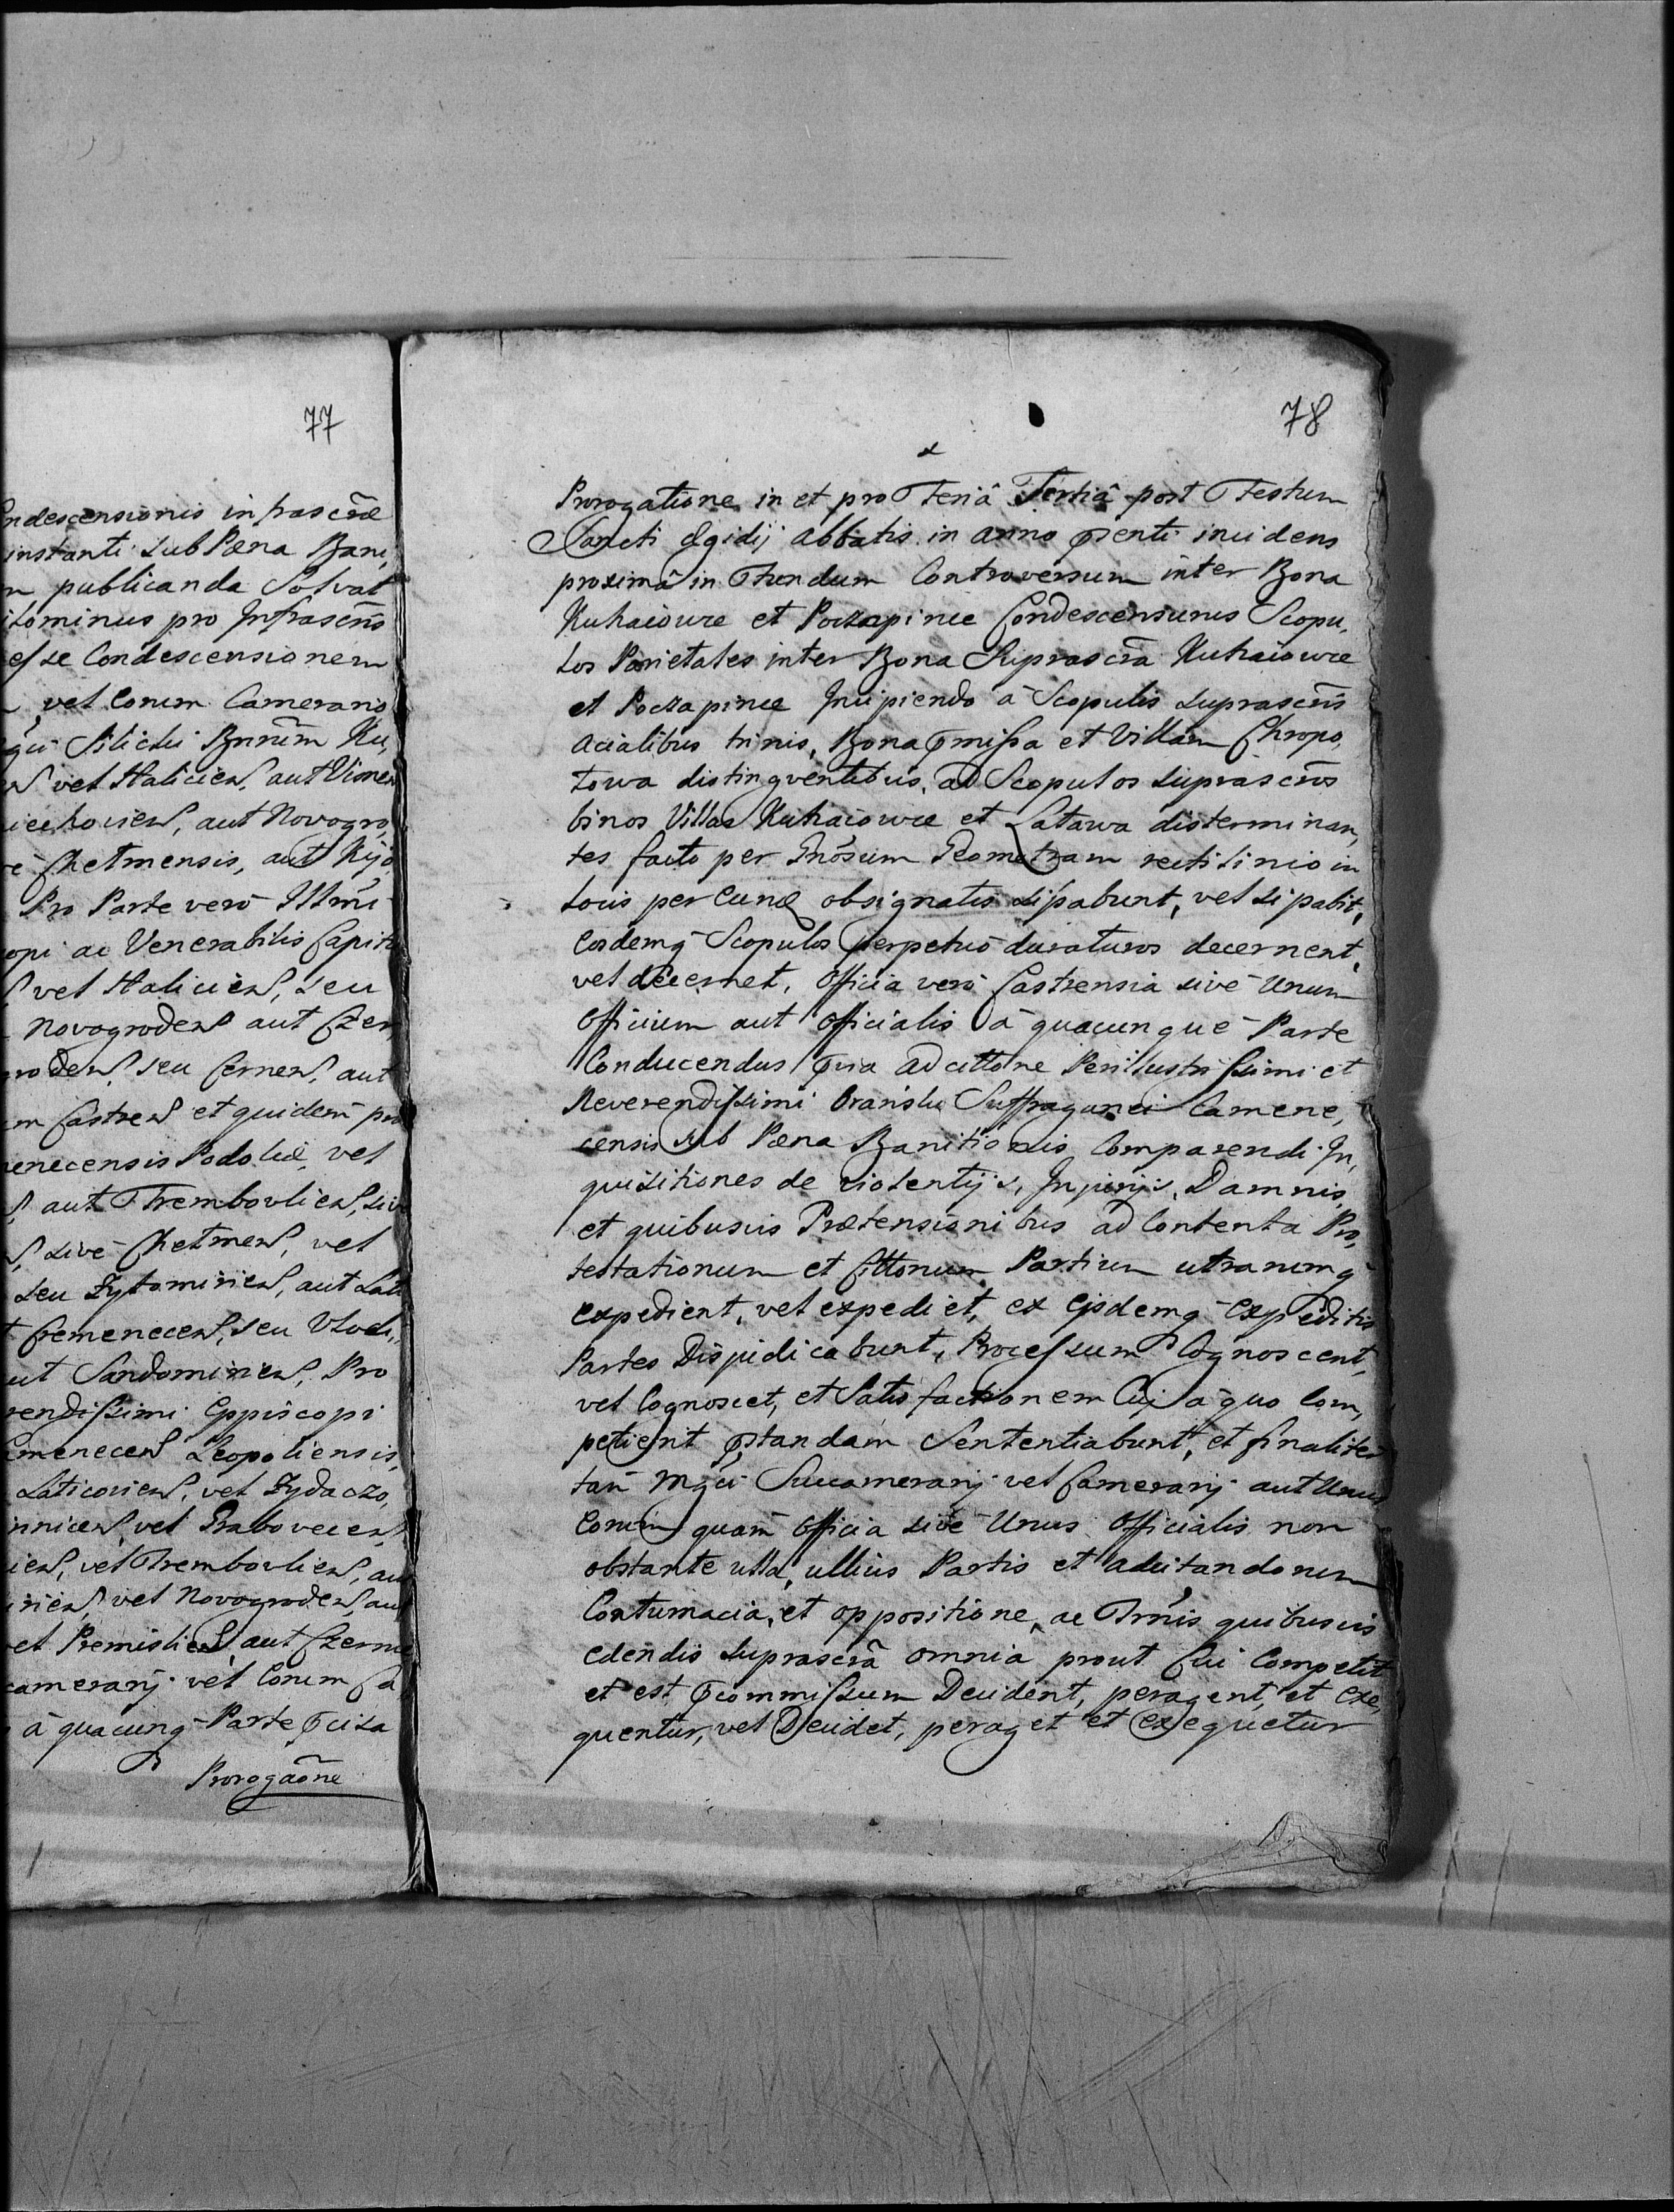 77
ndescensionis infrascr̃æ
instanti sub Pæna Bani,
publicanda Solvat
pro Infrascr̃is
esse Condescensionem
vel Eorum Camerario
vel Haliciens, aut
aut Novogro,
Chelmensis, aut Kijo,
Pro Parte verò Illm̃i
opi ac Venerabilis Capitu
vel Haliciens, seu
Novogrodens aut Czer,
rodens, seu aut
m Castrens et quidem pro
enecensis Podoliæ, vel
aut Trembovliens, siv
sivè Chelmens, vel
seu Zytomiriens, aut Lati
Cremenecens, seu Vlodi,
ut Sandomiriens, Pro
rendissimi Eppiscopi
menecens Leopoliensis,
Laticoviens, vel Zydaczo,
vel Grabovecens,
iens, vel Trembovliens, au
iriens, vel Novogrodens, aut
et Premisliens, aut Czerne
camerarij vel Eorum Ca
à quacunq̃ Parte
Prorogaõne
78
Prorogatione in et pro Feriâ Tertiâ post Festum
Sancti Ægidij Abbatis in Anno p̃senti incidens
proximâ in Fundum Controversum inter Bona
Kuhaiowce et Poczapince Condescensuris Scopu,
los Parietales inter Bona Suprascr̃a Kuhaiowce
et Poczapince Incipiendo à Scopulis suprascr̃is
Acialibus trinis, Bona p̃missa et Villam Chropo,
towa distingventibus, ad Scopulos suprascr̃os
binos Villas Kuhaiowce et Latawa disterminan,
tes facto per Gñosum Geometram rectilinio in
Locis per Eund obsignatis sipabunt, vel sipabit,
Eosdemq̃ Scopulos perpetuò duraturos decernent,
vel decernet, Officia verò Castrensia sivè Unum
Officium aut Officialis à quacunquè Parte
Conducendus p̃via Adcittõne Perillustrissimi et
Reverendissimi Suffraganei Camene,
censis sub Pæna Banitionis Comparendi In,
quisitiones de violentijs, Injurijs, Damnis,
et quibusvis Prætensionibus ad Contenta Pro,
testationum et Cittonum Partium utrarumq̃
expedient, vel expediet, ex Ejsdemq̃ Expeditis
Partes Disjudicabunt, Processum Cognoscent,
vel Cognoscet, et Satisfactionem Cui à quo Com,
petierit p̃standam Sententiabunt, et finaliter
tam Mg̃ci Succamerarij vel Camerarij aut Unus
Eorum quam Officia sivè Unus Officialis non
obstante ulla, ullius Partis et Adcitandorum
Contumacia, et oppositione, ac Trm̃is quibusvis
edendis Suprascr̃a omnia prout Cui Competit
et est p̃commissum Decident, peragent, et Exe,
quentur, vel Decidet, peraget et Exequetur